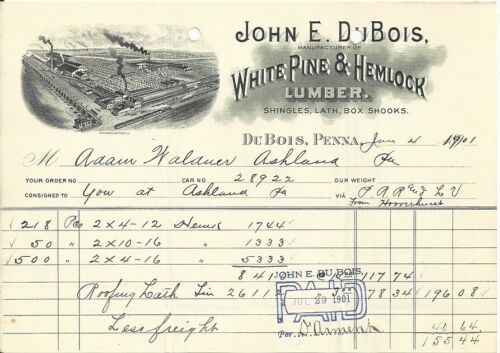 JOHN E. DUBOIS,
MANUFACTURER OF
WHITE PINE & HEMLOCK
LUMBER.
SHINGLES, LATH, BOX SHOOKS.
DUBOIS, PENNA. Jan 4 1901
M Adam Waldner Ashland Pa
YOUR ORDER NO CAR NO 28922 OUR WEIGHT
CONSIGNED TO You at Ashland Pa VIA P R R and L V
From
218 Pcs 2 x 4-12 Hem 1744
50 " 2 x 10-16 " 1333
500 " 2 x 4-16 " 5333
8410 117 74
Roofing Lath 26112 3 00 78 34 196 08
JOHN E. DU BOIS,
PAID
JUL 29 1901
Per
Less freight 40 64
155 44